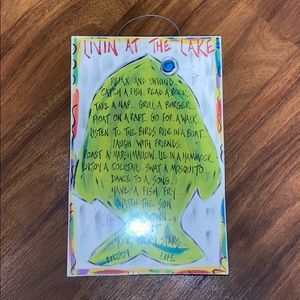 LIVIN AT THE LAKE
RELAX AND UNWIND
CATCH A FISH. READ A BOOK.
TAKE A NAP... GRILL A BURGER.
FLOAT ON A RAFT. GO FOR A WALK.
LISTEN TO THE BIRDS. RIDE IN A BOAT.
LAUGH WITH FRIENDS.
ROAST A MARSHMALLOW. LIE IN A HAMMOCK.
ENJOY A COCKTAIL. SWAT A MOSQUITO.
DANCE TO A SONG.
HAVE A FISH FRY.
WATCH THE SUN
DOWN...
STARS.
ENJOY LIFE